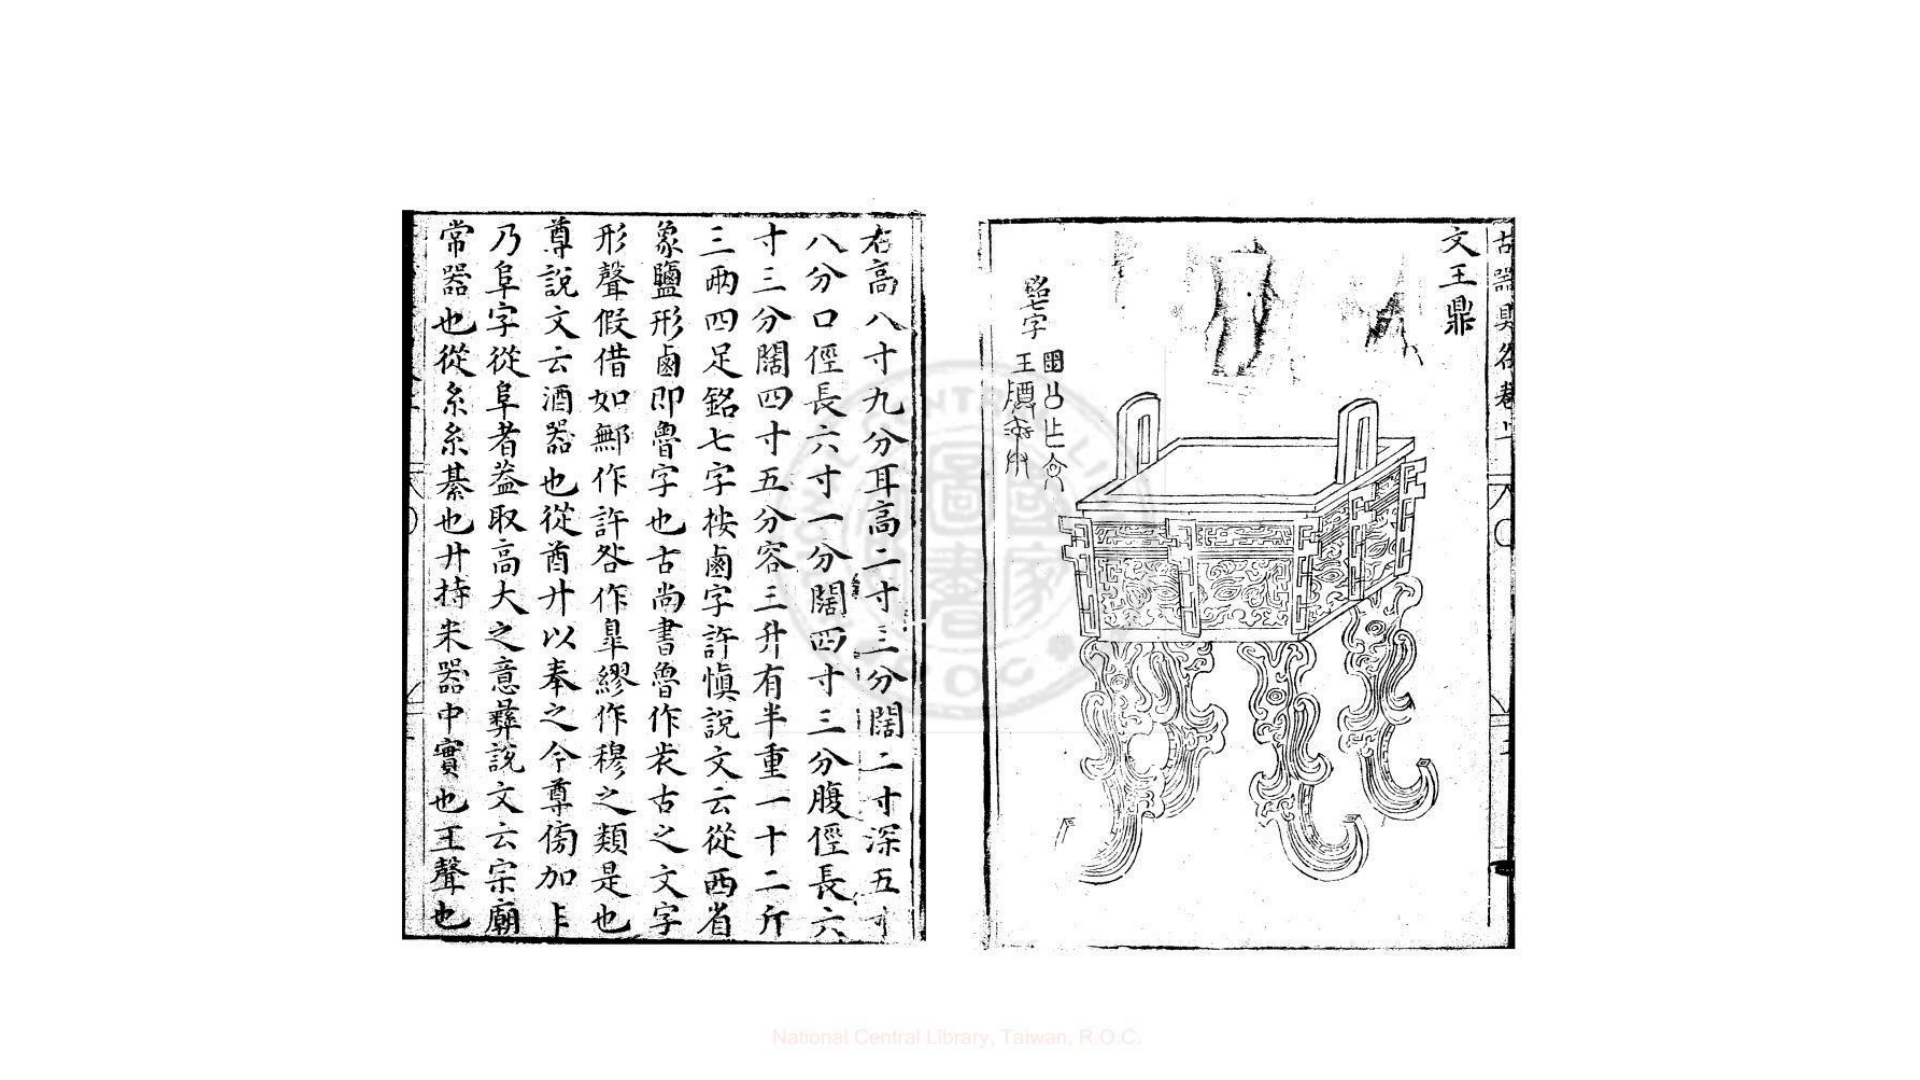 古器具名卷上
文王鼎
銘七字
右高八寸九分耳高二寸三分闊二寸深五寸
八分口徑長六寸一分闊四寸三分腹徑長六
寸三分闊四寸五分容三升有半重一十二斤
三兩四足銘七字按鹵字許慎說文云從西省
象鹽形鹵即魯字也古尚書魯作㕥古之文字
形聲假借如鄦作許咎作臯繆作穆之類是也
尊說文云酒器也從酋廾以奉之今尊傍加阝
乃阜字從阜者葢取高大之意彞說文云宗廟
常器也從糸糸綦也廾持米器中實也王聲也
National Central Library, Taiwan, R.O.C.